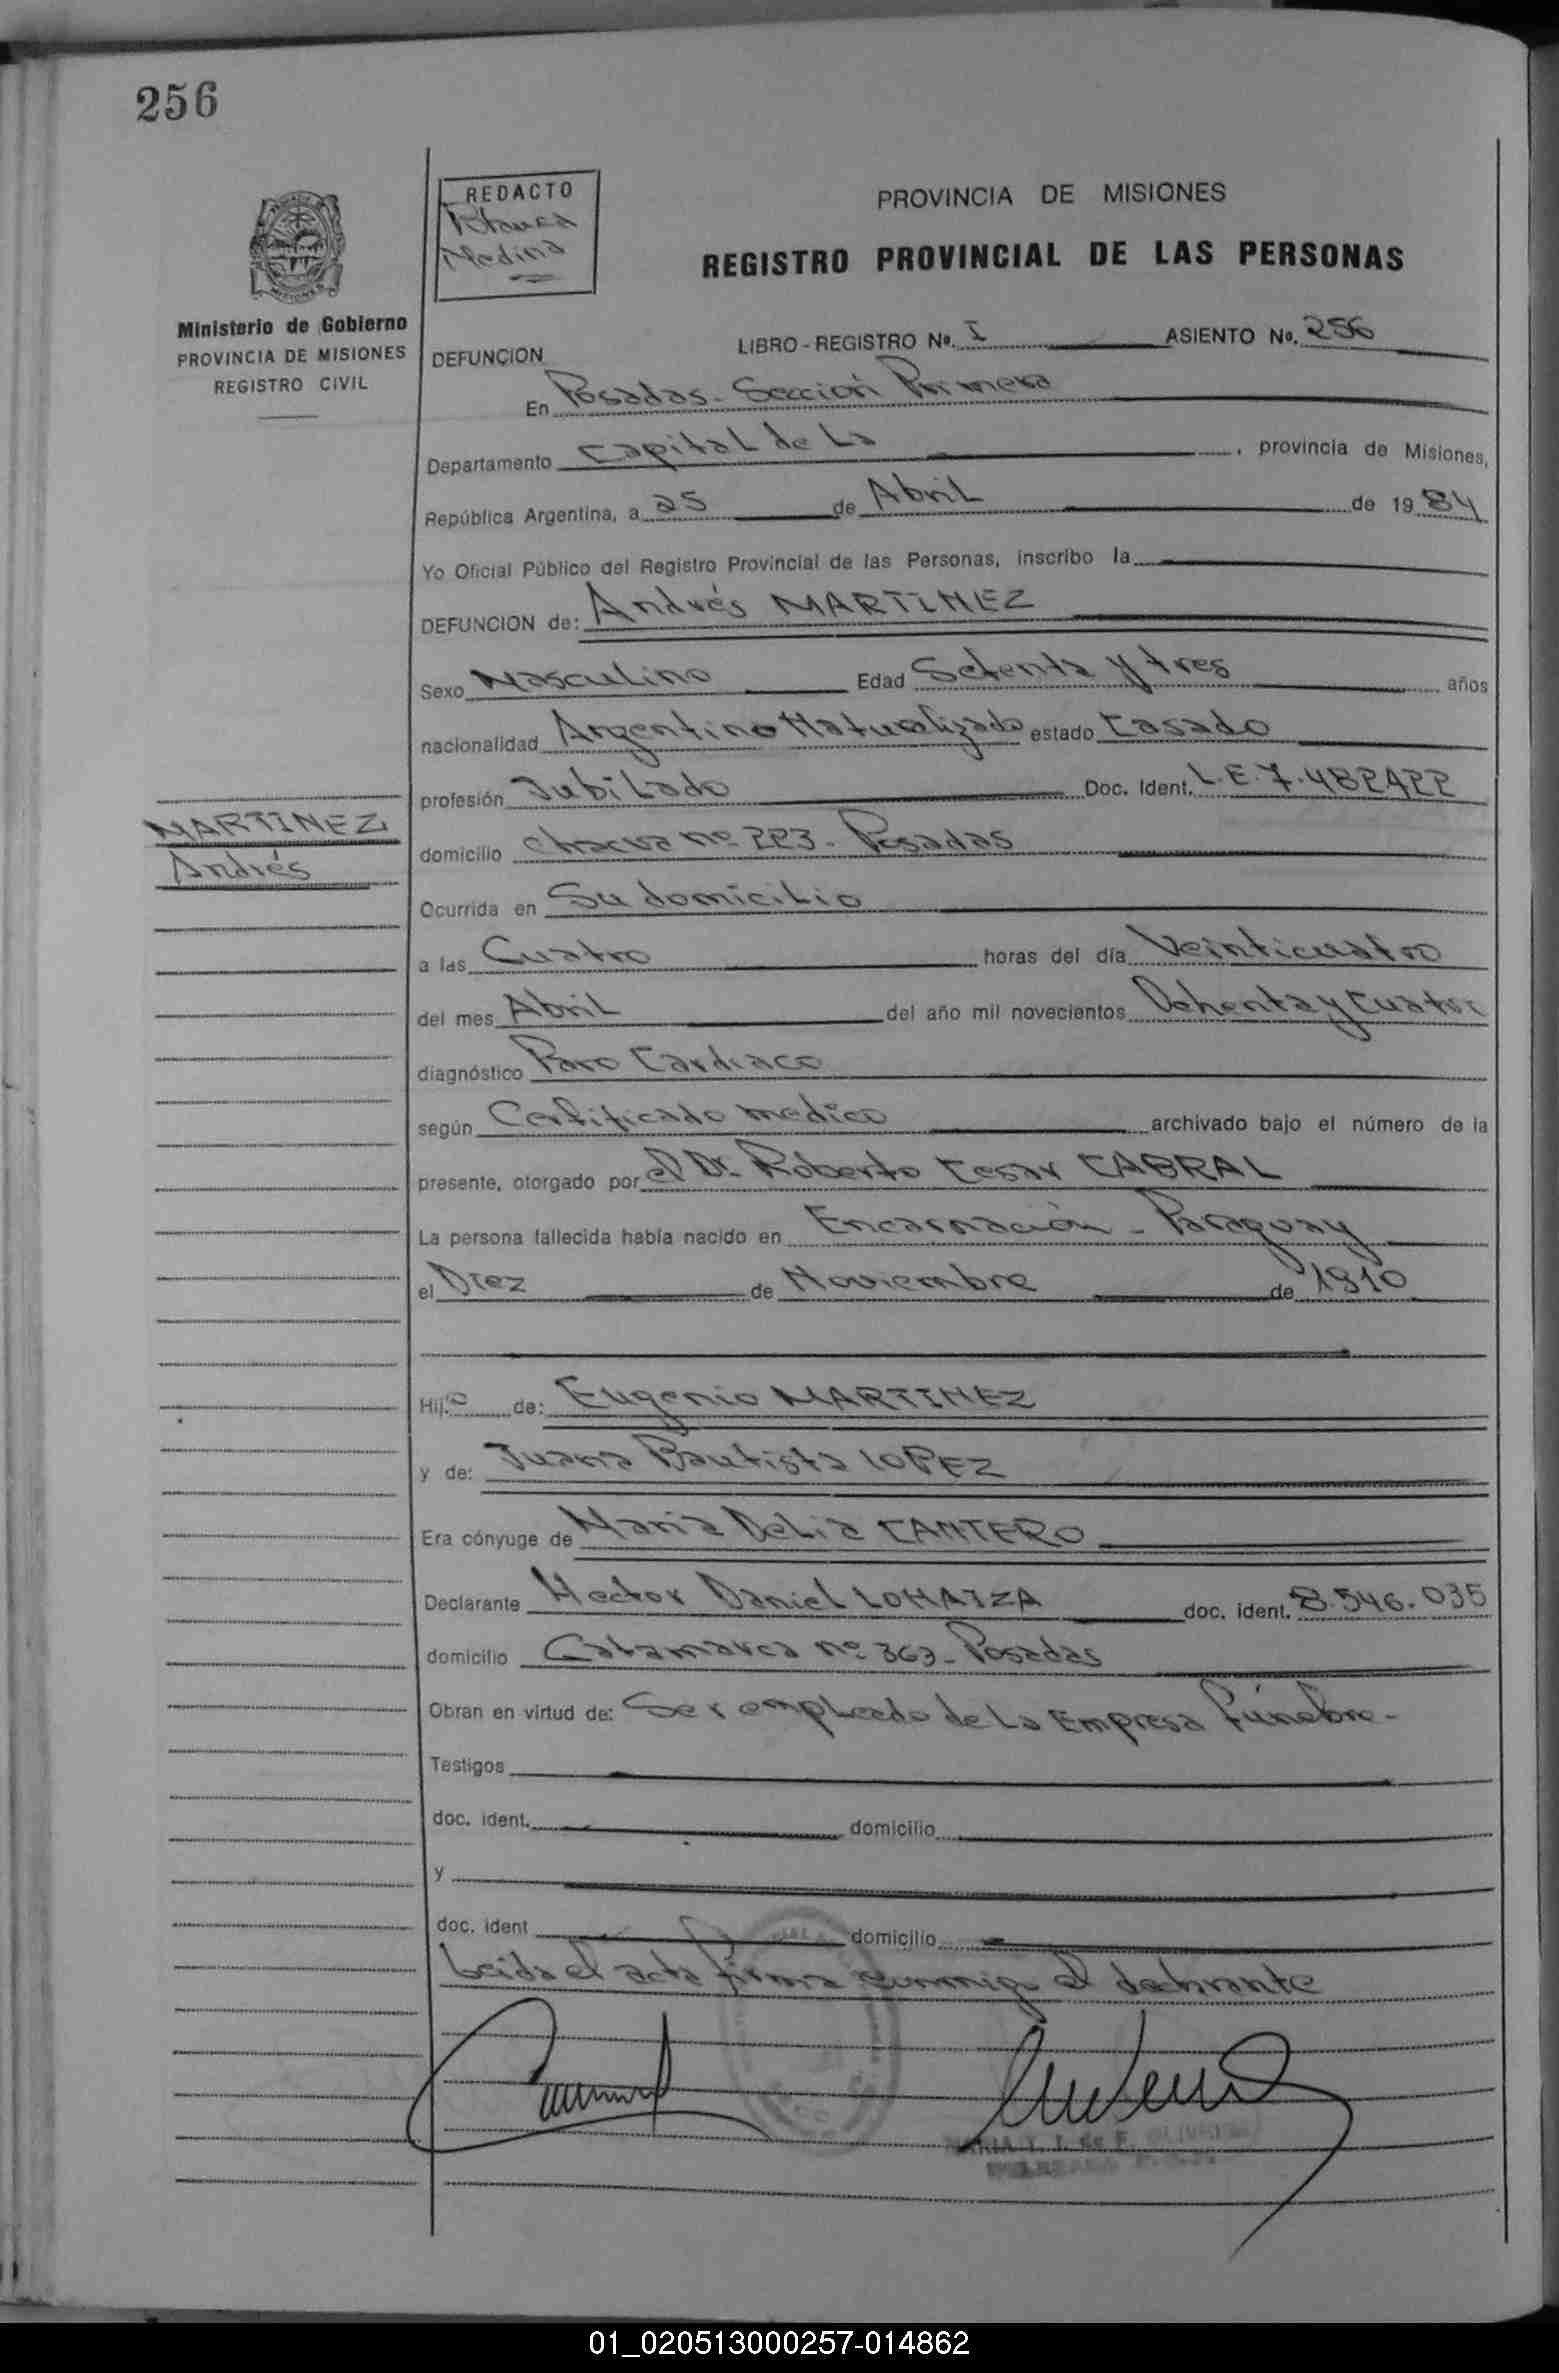 256
REDACTO
Blanca
Medina
PROVINCIA DE MISIONES
REGISTRO PROVINCIAL DE LAS PERSONAS
Ministerio de Gobierno
PROVINCIA DE MISIONES
REGISTRO CIVIL
LIBRO - REGISTRO No. I ASIENTO No. 256
DEFUNCION
En Posadas - Sección Primera
Departamento Capital de La , provincia de Misiones,
República Argentina, a 25 de Abril de 1984
Yo Oficial Público del Registro Provincial de las Personas, inscribo la
DEFUNCION de: Andrés MARTINEZ
Sexo Masculino Edad Setenta y tres años
nacionalidad Argentino Naturalizado estado Casado
profesión Jubilado Doc. Ident. L.E. 7.482422
MARTINEZ
Andrés
domicilio chacra nº 223 - Posadas
Ocurrida en Su domicilio
a las Cuatro horas del día Veinticuatro
del mes Abril del año mil novecientos Ochenta y Cuatro
diagnóstico Paro Cardiaco
según Certificado medico archivado bajo el número de la
presente, otorgado por el Dr. Roberto Cesar CABRAL
La persona fallecida había nacido en Encarnación - Paraguay
el Diez de Noviembre de 1910
Hijo de: Eugenio MARTINEZ
y de: Juana Bautista LOPEZ
Era cónyuge de Maria Delia CANTERO
Declarante Hector Daniel LOHAIZA doc. ident. 8.546.035
domicilio Catamarca nº 363 - Posadas
Obran en virtud de: Ser empleado de La Empresa Fúnebre -
Testigos
doc. ident. domicilio
y
doc. ident domicilio
Leida el acta firma conmigo el declarante
MARIA T. I. de F.
01_020513000257-014862